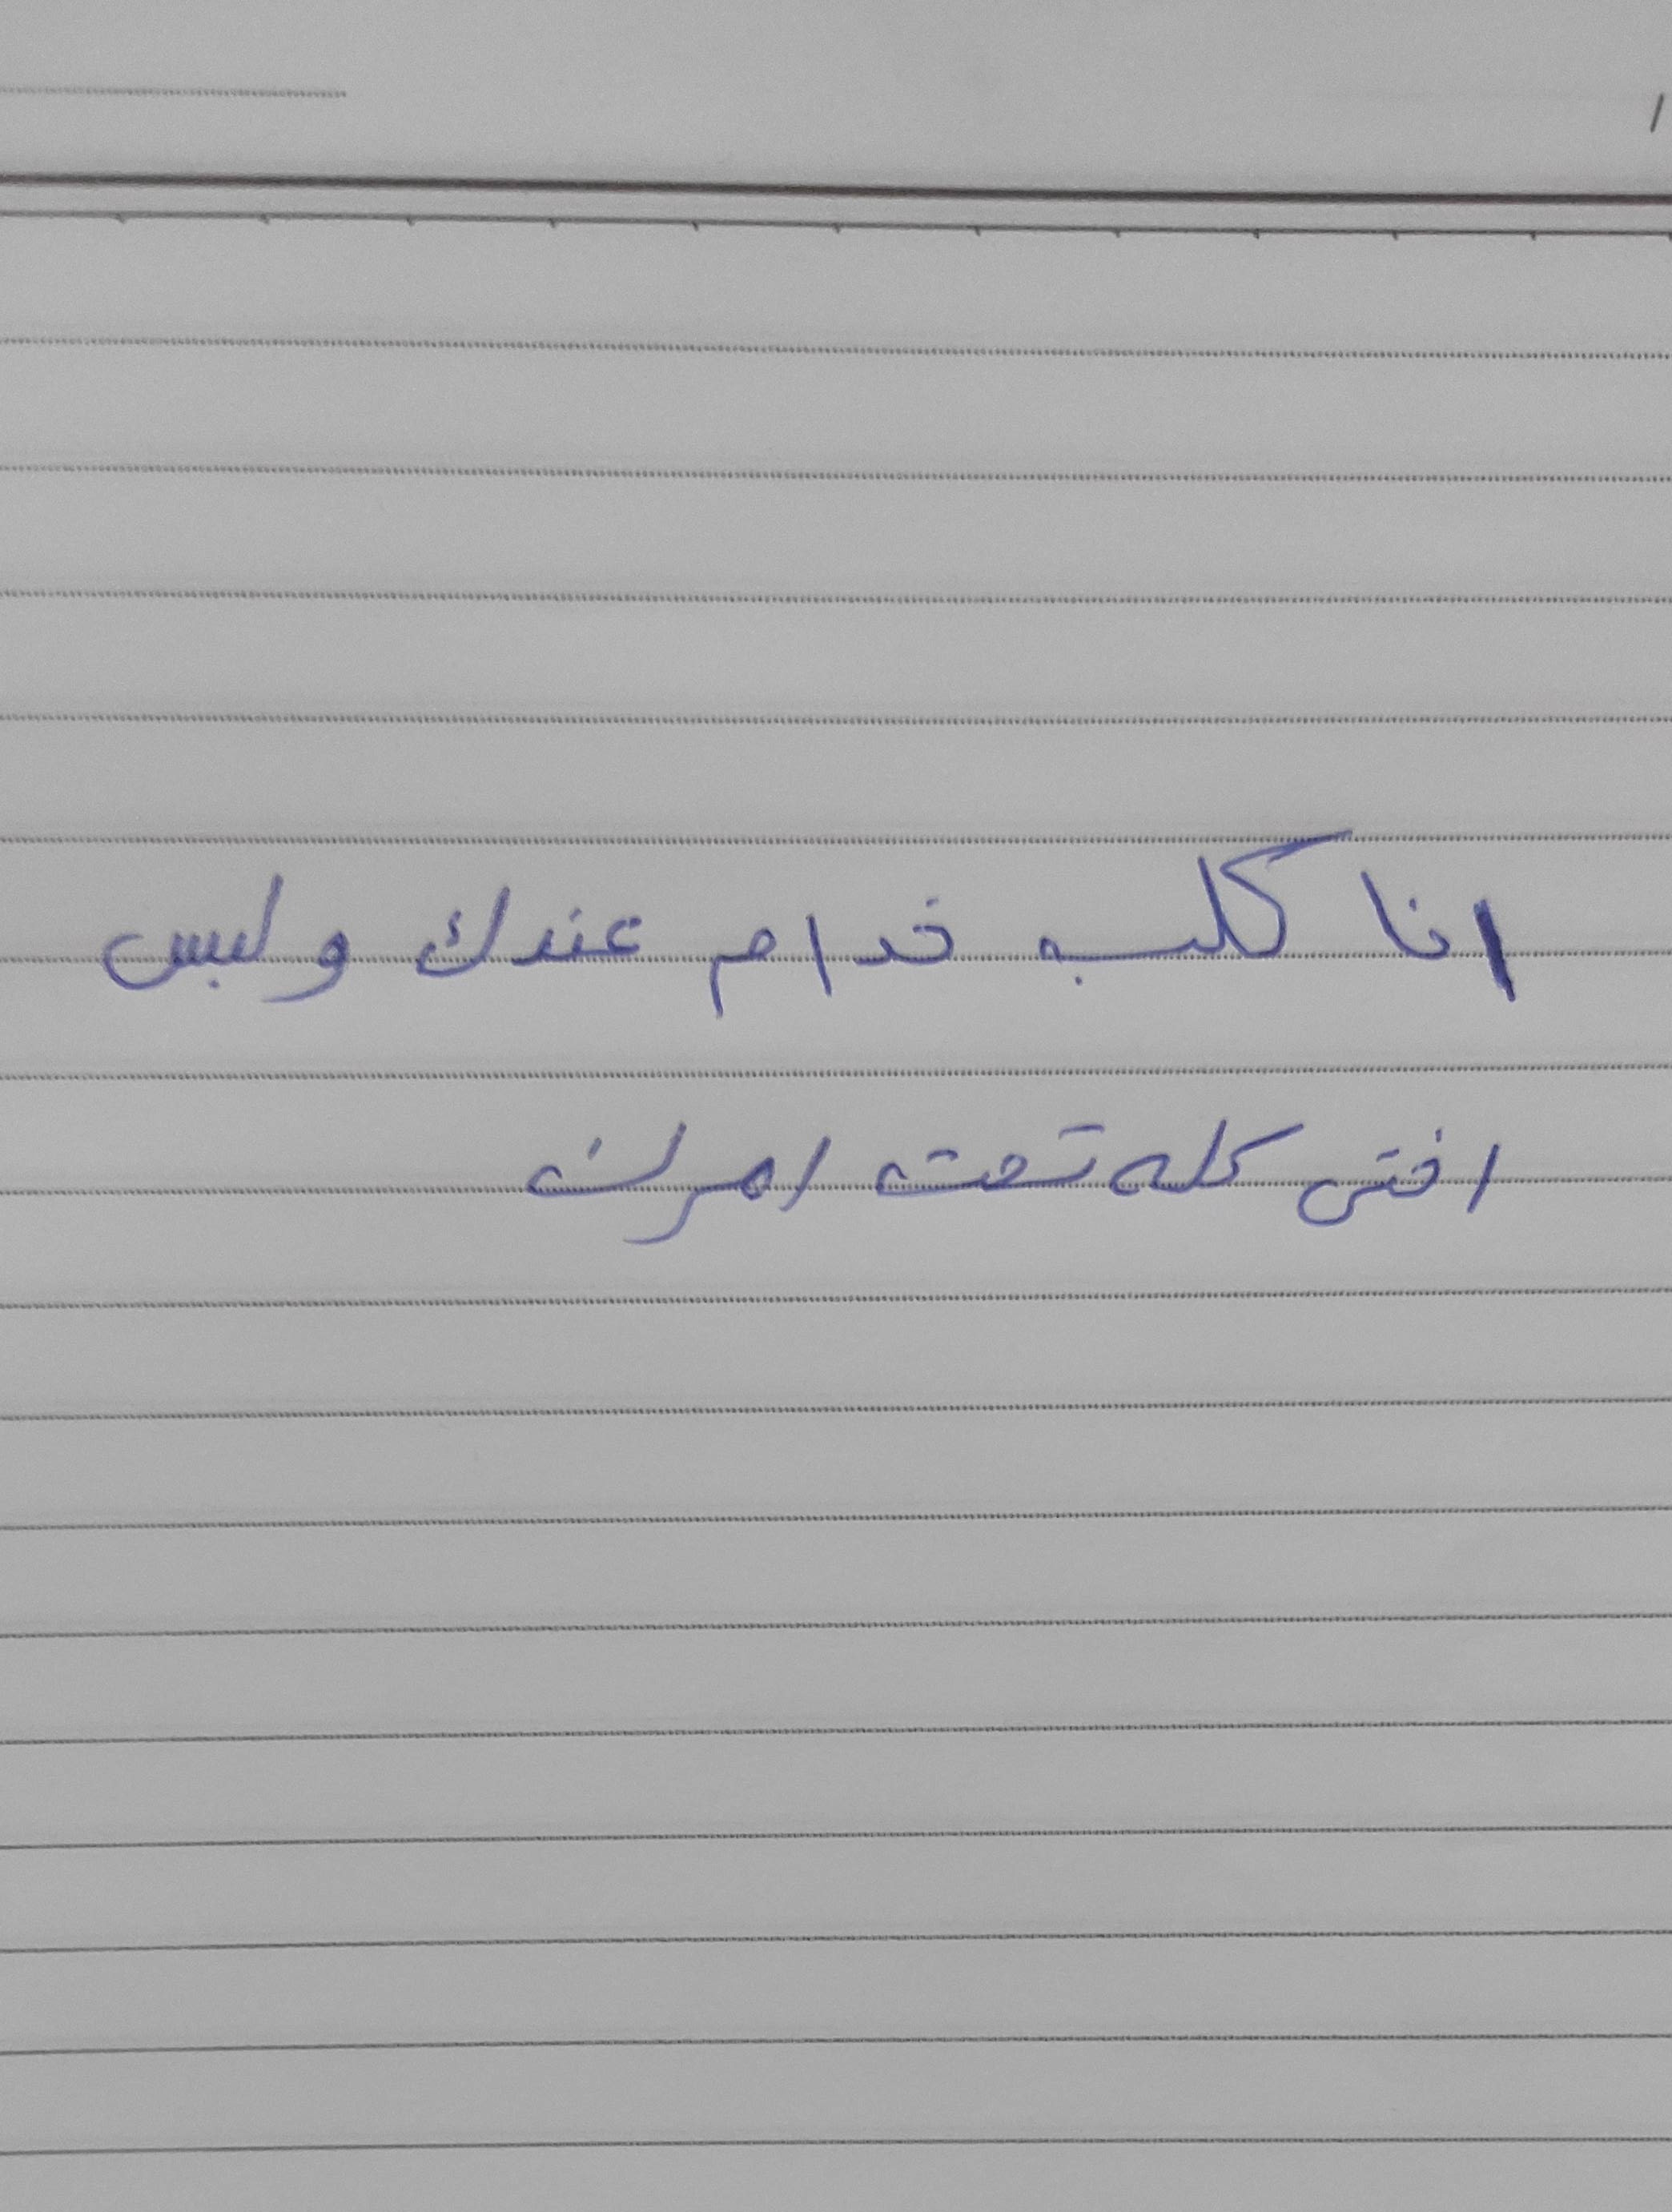 انا كلب خدام عندك ولبس
اختي كله تحت امرك